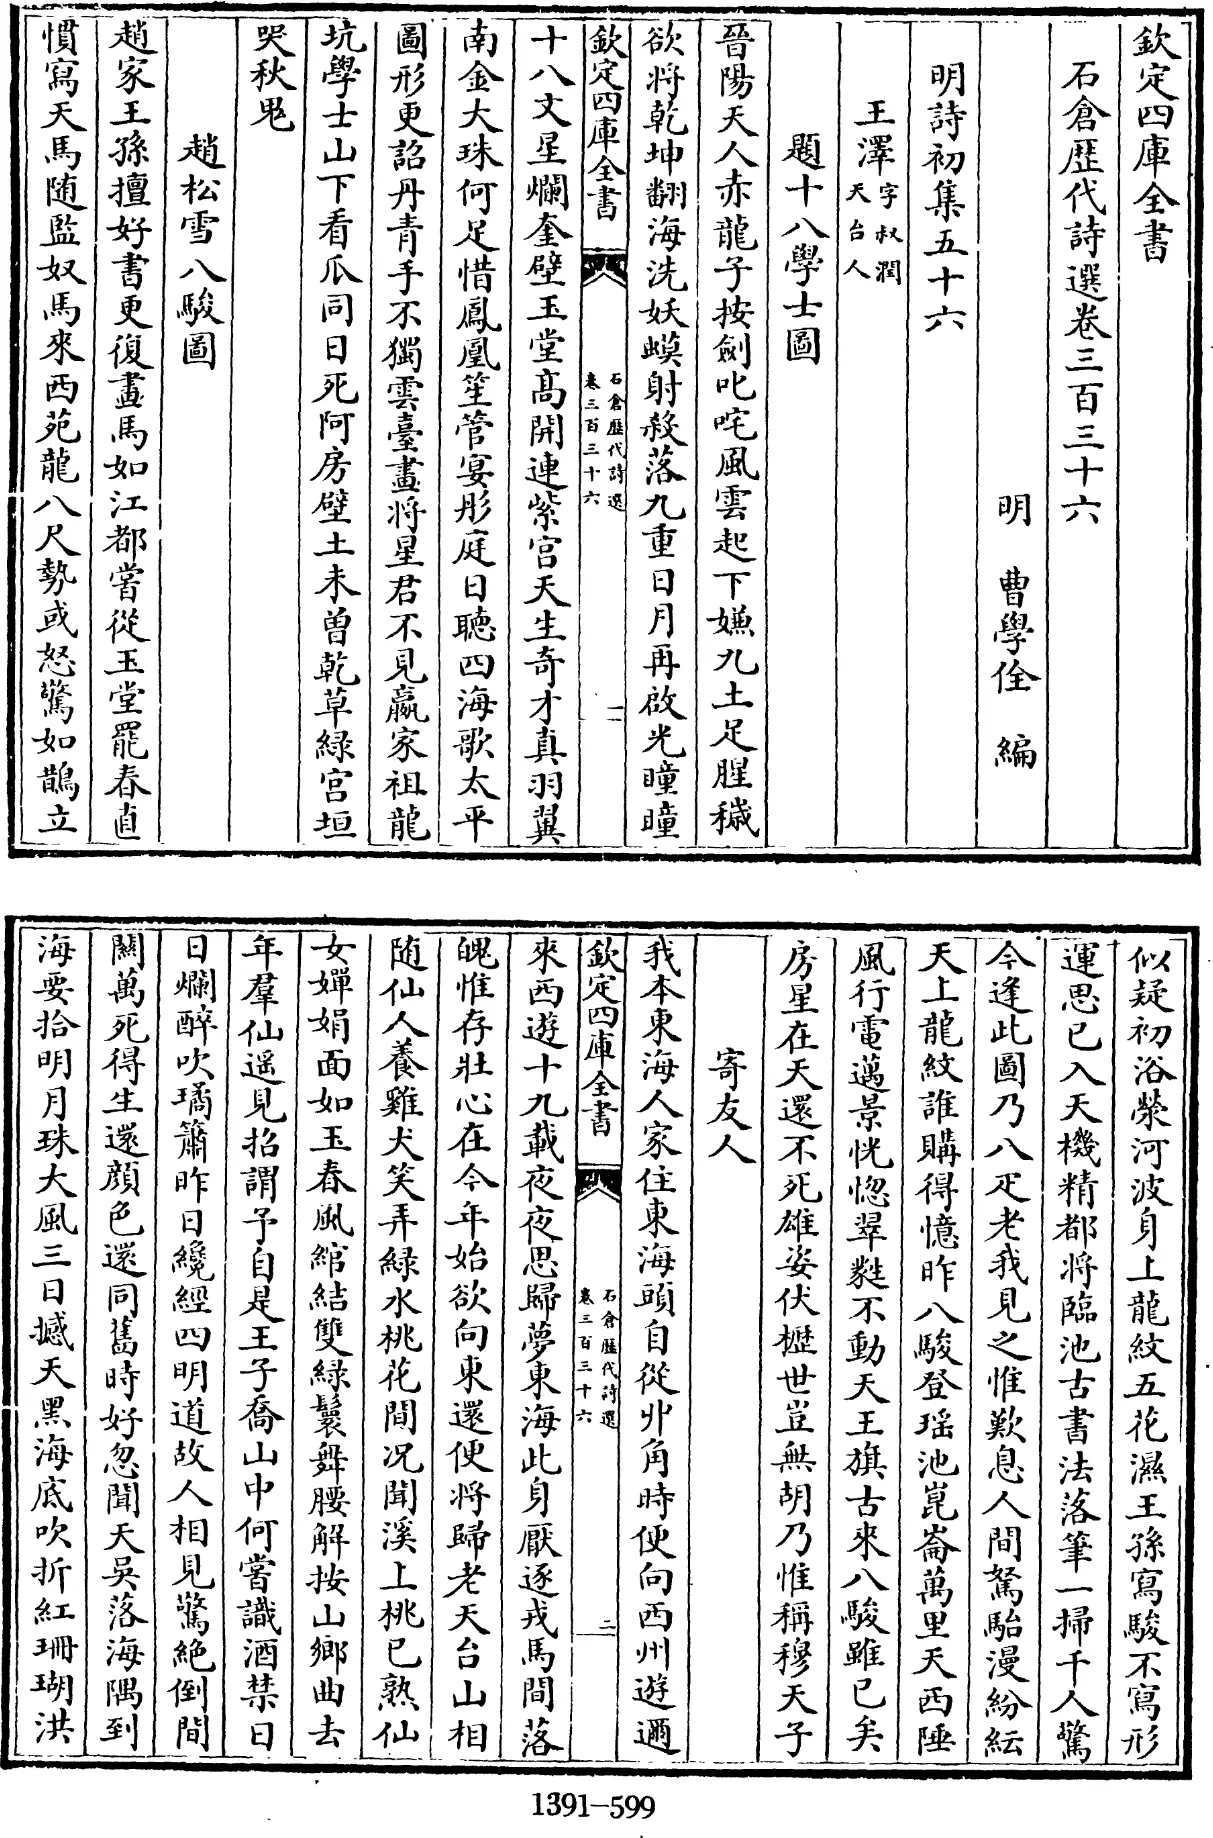 欽定四庫全書
石倉歷代詩選卷三百三十六
明 曹學佺 編
明詩初集五十六
王澤字叔潤天台人
題十八學士圖
晉陽天人赤龍子按劍叱咤風雲起下嫌九土足腥穢
欲將乾坤翻海洗妖蟆射殺落九重日月再啟光曈曈
欽定四庫全書
石倉歷代詩選
卷三百三十六
一
十八文星爛奎壁玉堂高開連紫宮天生奇才真羽翼
南金大珠何足惜鳳凰笙管宴彤庭日聽四海歌太平
圖形更詔丹青手不獨雲臺畫將星君不見嬴家祖龍
坑學士山下看瓜同日死阿房壁土未曾乾草綠宮垣
哭秋鬼
趙松雪八駿圖
趙家王孫擅好書更復畫馬如江都嘗從玉堂罷春直
慣寫天馬随監奴馬來西苑龍八尺勢或怒驚如鵲立
似疑初浴滎河波身上龍紋五花濕王孫寫駿不寫形
運思已入天機精都將臨池古書法落筆一掃千人驚
今逢此圖乃八疋老我見之惟歎息人間駑駘漫紛紜
天上龍紋誰購得憶昨八駿登瑶池崑崙萬里天西陲
風行電邁景恍惚翠蕤不動天王旗古來八駿雖已矣
房星在天還不死雄姿伏櫪世豈無胡乃惟稱穆天子
寄友人
我本東海人家住東海頭自從丱角時便向西州遊邇
欽定四庫全書
石倉歷代詩選
卷三百三十六
二
來西遊十九載夜夜思歸夢東海此身厭逐戎馬間落
魄惟存壯心在今年始欲向東還便將歸老天台山相
随仙人養雞犬笑弄綠水桃花間况聞溪上桃已熟仙
女嬋娟面如玉春風綰結雙綠鬟舞腰解按山鄉曲去
年羣仙遥見招謂予自是王子喬山中何嘗識酒禁日
日爛醉吹璚簫昨日纔經四明道故人相見驚絶倒間
關萬死得生還顔色還同舊時好忽聞天吳落海隅到
海要拾明月珠大風三日撼天黑海底吹折紅珊瑚洪
1391-599